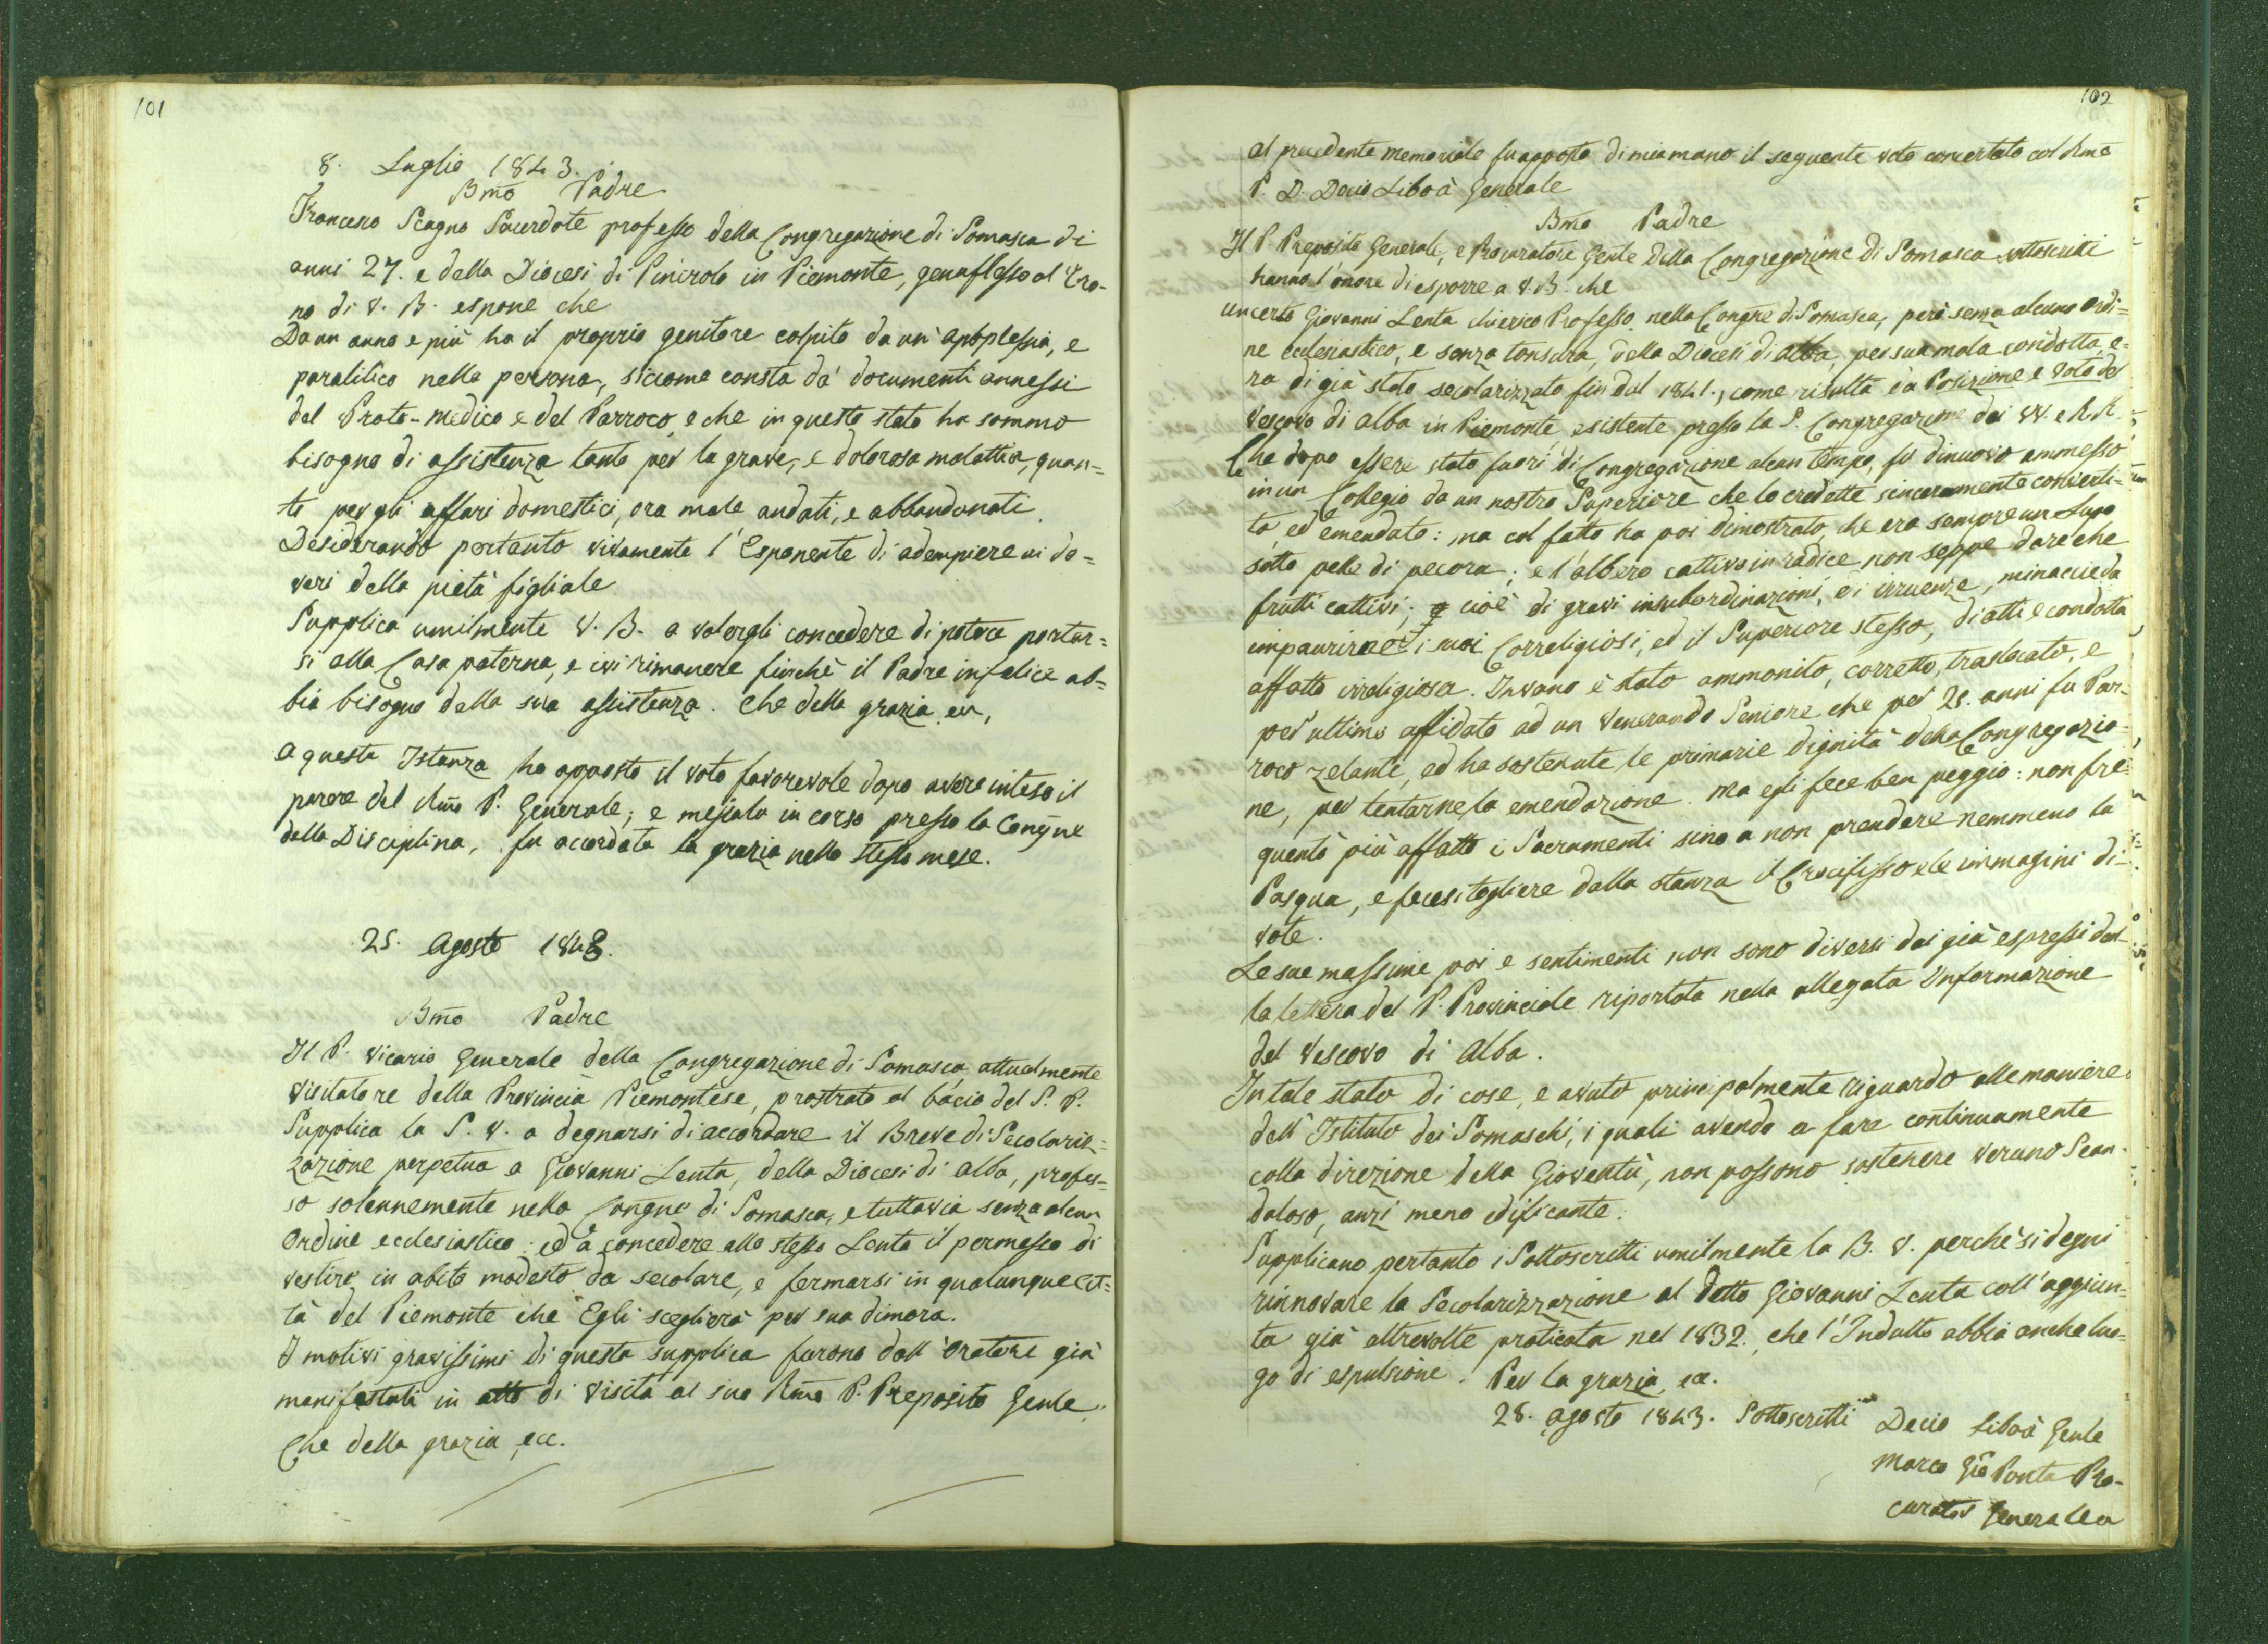 101
8. Luglio 1843.
Bmo Padre
Francesco Scagno Sacerdote professo della Congregazione di Somasca di
anni 27. e della Diocesi di Pinerolo in Piemonte, genuflesso al Tro-
no di V. B. espone che
Da un anno e più ha il proprio genitore colpito da un' apoplessia, e
paralitico nella persona, siccome consta da' documenti annessi
del Proto-medico e del Parroco, e che in questo stato ha sommo
bisogno di assistenza tanto per la grave, e dolorosa malattia, quan=
to per gli affari domestici, ora male andati, e abbandonati.
Desiderando pertanto vivamente l'Esponente di adempiere ai do=
veri della pietà figliale
Supplica umilmente V. B. a volergli concedere di potere portar=
si alla Casa paterna, e ivi rimanere finchè il Padre infelice ab=
bia bisogno della sua assistenza. Che della grazia ecc,
A questa Istanza ho apposto il voto favorevole dopo avere inteso il
parere del Rmo P. Generale; e messala in corso presso la Congne
della Disciplina, fu accordata la grazia nello stesso mese.
25. Agosto 1843.
Bmo Padre
Il P. Vicario Generale della Congregazione di Somasca, attualmente
Visitatore della Provincia Piemontese, prostrato al bacio del S. P.
Supplica la S. V. a degnarsi di accordare il Breve di Secolariz=
zazione perpetua a Giovanni Lenta, della Diocesi di Alba, profes=
so solennemente nella Congne di Somasca, e tuttavia senza alcun
Ordine ecclesiastico; ed a concedere allo stesso Lenta il permesso di
vestire in abito modesto da secolare, e fermarsi in qualunque Cit=
tà del Piemonte che Egli sceglierà per sua dimora.
I motivi gravissimi di questa supplica furono dall'Oratore già
manifestati in atto di Visita al suo Rmo P. Preposito Genle.
Che della grazia ecc.
102
Al precedente memoriale fu apposto di mia mano il seguente voto concertato col Rmo
P. D. Decio Liboà Generale
Bmo Padre
Il P. Preposito Generale, e Procuratore Genle della Congregazione di Somasca sottoscritti
hanno l'onore di esporre a V. B. che
un certo Giovanni Lenta chierico Professo nella Congne di Somasca, però senza alcuno Ordi=
ne ecclesiastico, e senza tonsura, della Diocesi di Alba, per sua mala condotta, e=
ra di già stato secolarizzato fin dal 1841., come risulta da Posizione e Voto del
Vescovo di Alba in Piemonte, esistente presso la S. Congregazione dei VV. e RR.
Che dopo essere stato fuori di Congregazione alcun tempo, fu di nuovo ammesso
in un Collegio da un nostro Superiore che lo credette sinceramente converti=
to, ed emendato: ma col fatto ha poi dimostrato, che era sempre un Lupo
sotto pelle di pecora; e l'albero cattivo in radice non seppe dare che
frutti cattivi; cioè di gravi insubordinazioni, di irruenze, minaccie da
impaurirne i suoi Correligiosi, ed il Superiore stesso, di atti e condotta
affatto irreligiosa. Invano è stato ammonito, corretto, traslocato, e
per ultimo affidato ad un Venerando Seniore che per 25. anni fu Par-
roco zelante, ed ha sostenute le primarie dignità della Congregazio-
ne, per tentarne la emendazione. Ma egli fece ben peggio: non fre=
quentò più affatto i Sacramenti sino a non prendere nemmeno la
Pasqua, e fecesi togliere dalla stanza il Crocifisso e le immagini di=
vote.
Le sue massime poi e sentimenti non sono diversi dai già espressi dal=
la lettera del P. Provinciale riportata nella allegata Informazione
del Vescovo di Alba.
In tale stato di cose, e avuto principalmente riguardo alle maniere
dell'Istituto dei Somaschi, i quali avendo a fare continuamente
colla direzione della Gioventù, non possono sostenere veruno Scan-
daloso, anzi meno edificante.
Supplicano pertanto i Sottoscritti umilmente la B. V. perchè si degni
rinnovare la Secolarizzazione al detto Giovanni Lenta coll'aggiun=
ta già altrevolte praticata nel 1832. che l'Indulto abbia anche luo=
go di espulsione. Per la grazia, ec.
28. Agosto 1843. Sottoscritti Decio Liboà Genle
Marco Gio Ponta Pro-
curator Generale